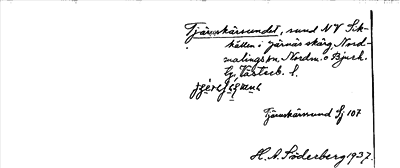 Tjärnskärsundet, sund NV Sik-
kälten i Järnäs skärg. Nord-
malings sn. Nordm. o Bjurh.
tg, Västerb. l.
Tjärnskärsund Sj 107
H. A. Söderberg 1937.